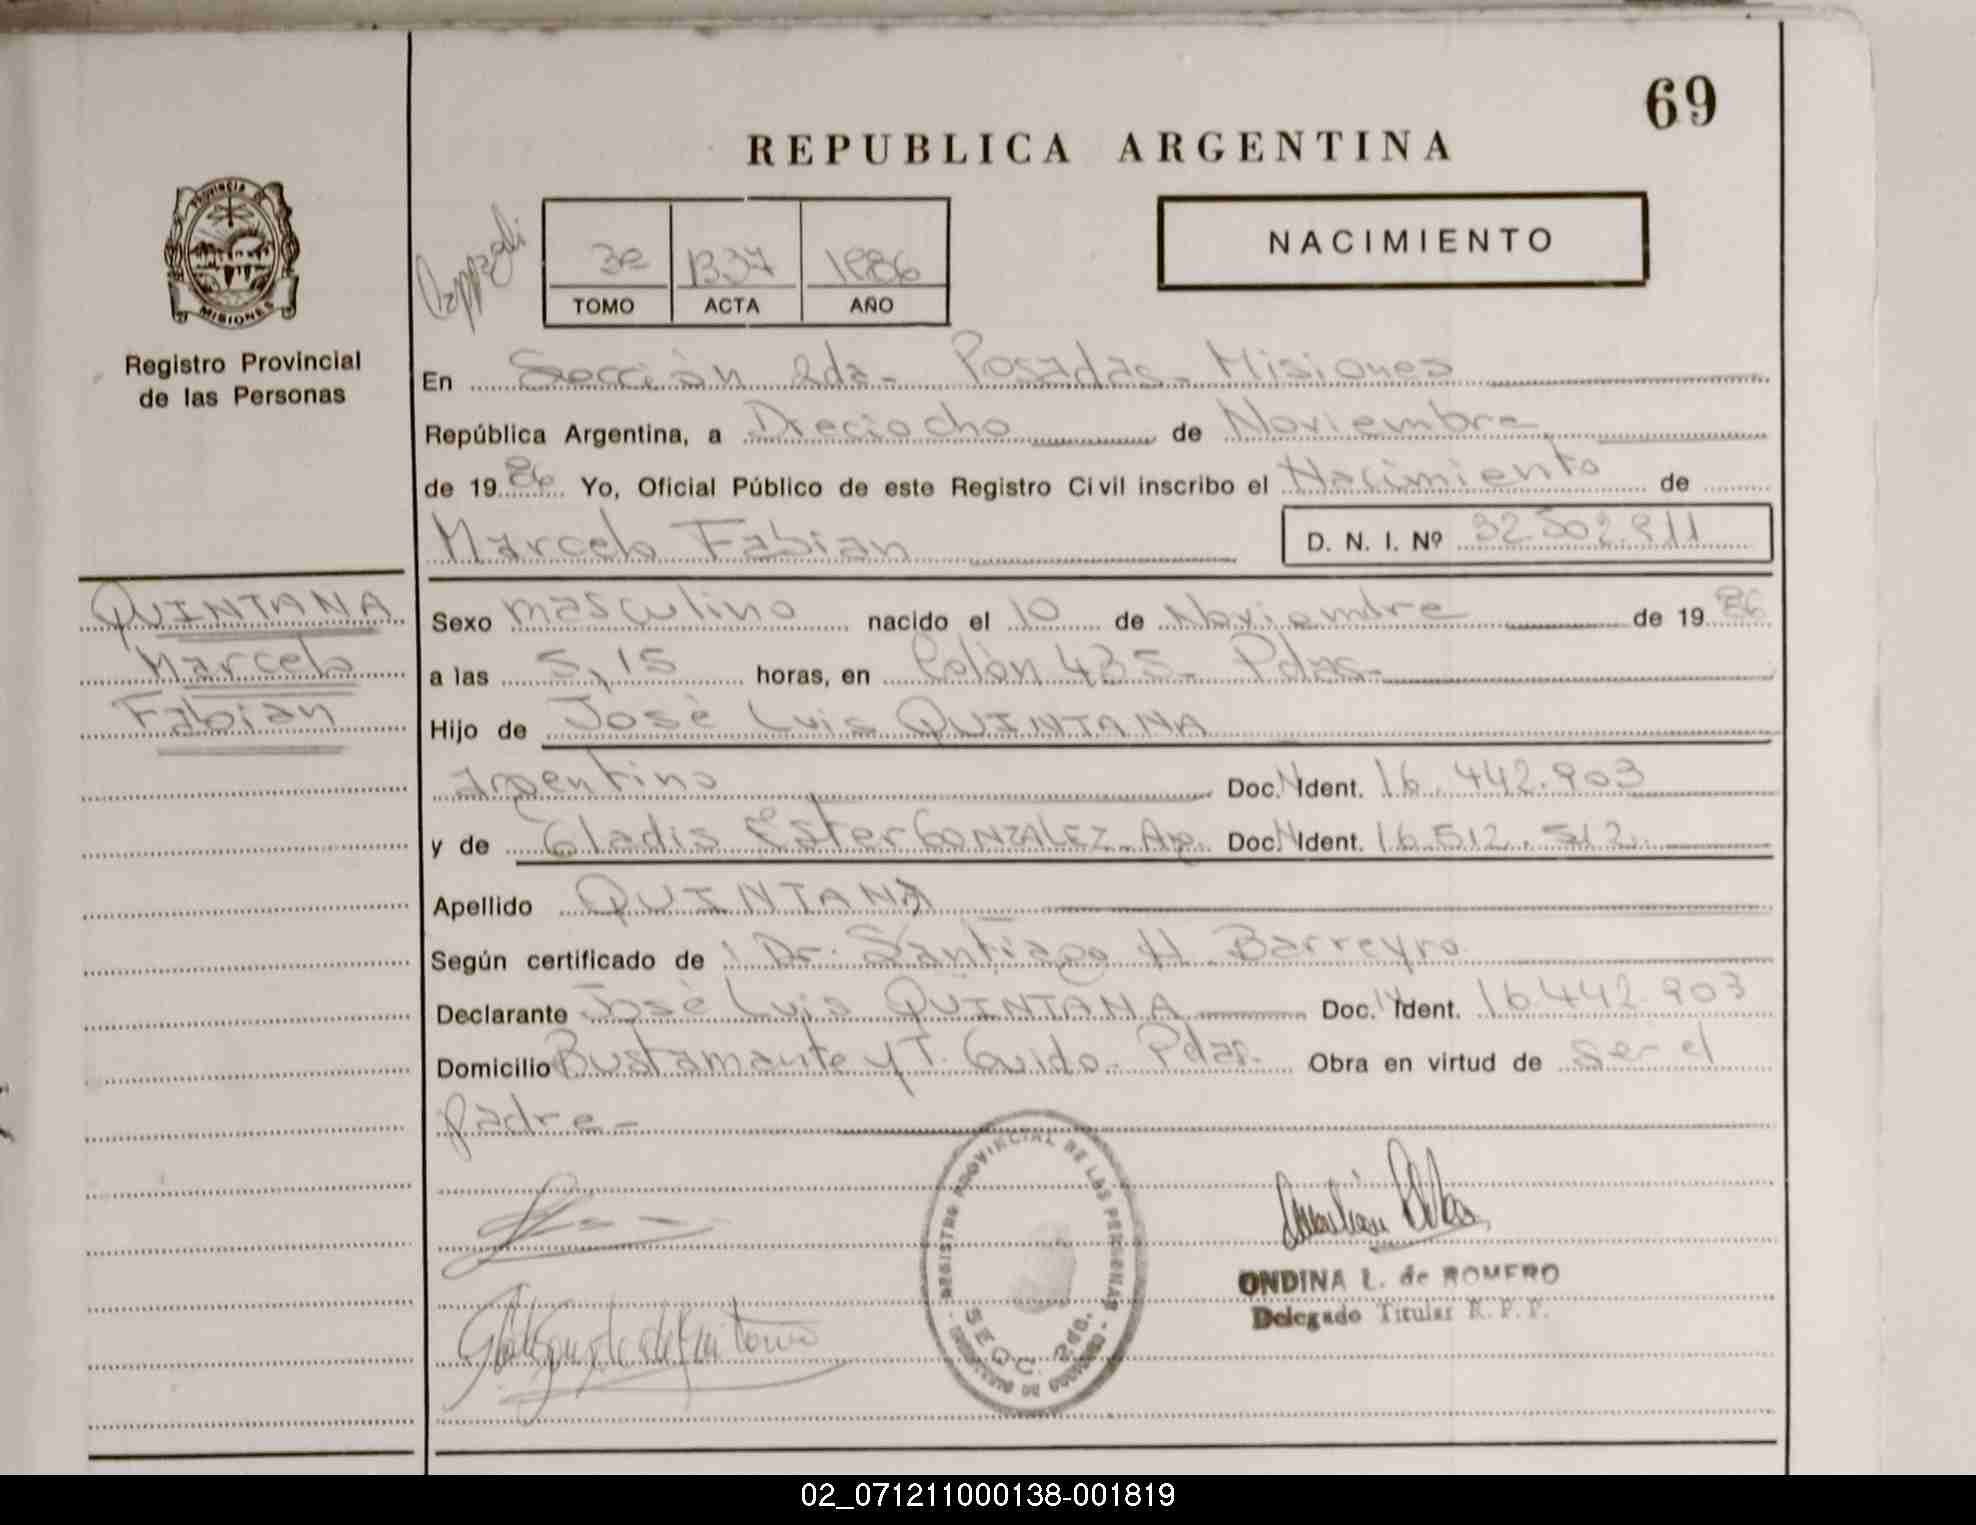 69
REPUBLICA ARGENTINA
PROVINCIA DE
MISIONES
Registro Provincial
de las Personas
3º 1337 1986
TOMO ACTA AÑO
NACIMIENTO
En Sección 2da - Posadas - Misiones
República Argentina, a Dieciocho de Noviembre
de 1986 Yo, Oficial Público de este Registro Civil inscribo el Nacimiento de
Marcelo Fabian D. N. I. Nº 32.502.911
QUINTANA
Marcelo
Fabian
Sexo masculino nacido el 10 de Noviembre de 1986
a las 5,15 horas, en Colón 435 - Pdas -
Hijo de José Luis QUINTANA
argentino Doc. N Ident. 16.442.903
y de Gladis Ester GONZALEZ - Ag. Doc. N Ident. 16.512.512
Apellido QUINTANA
Según certificado de Dr. Santiago H. Barreyro
Declarante José Luis QUINTANA Doc. N Ident. 16.442.903
Domicilio Bustamante y T. Guido - Pdas. Obra en virtud de ser el
padre -
REGISTRO PROVINCIAL DE LAS PERSONAS
SECC. 2da.
ONDINA L. de ROMERO
Delegado Titular R. P. P.
02_071211000138-001819